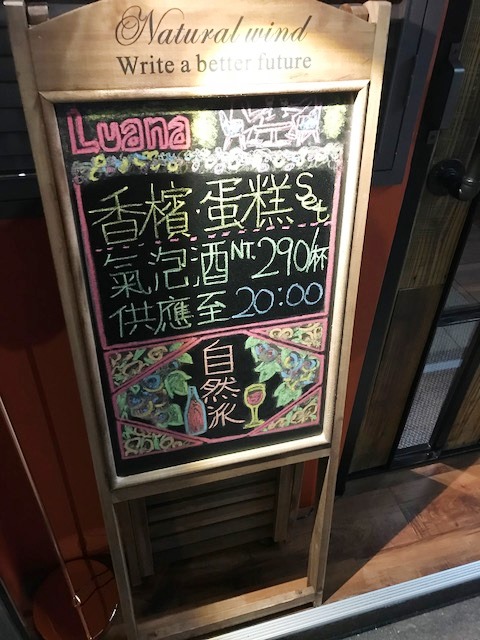 Natural wind
Write a better future
Luana
香檳·蛋糕Set
氣泡酒NT.290/杯
供應至20:00
自然派